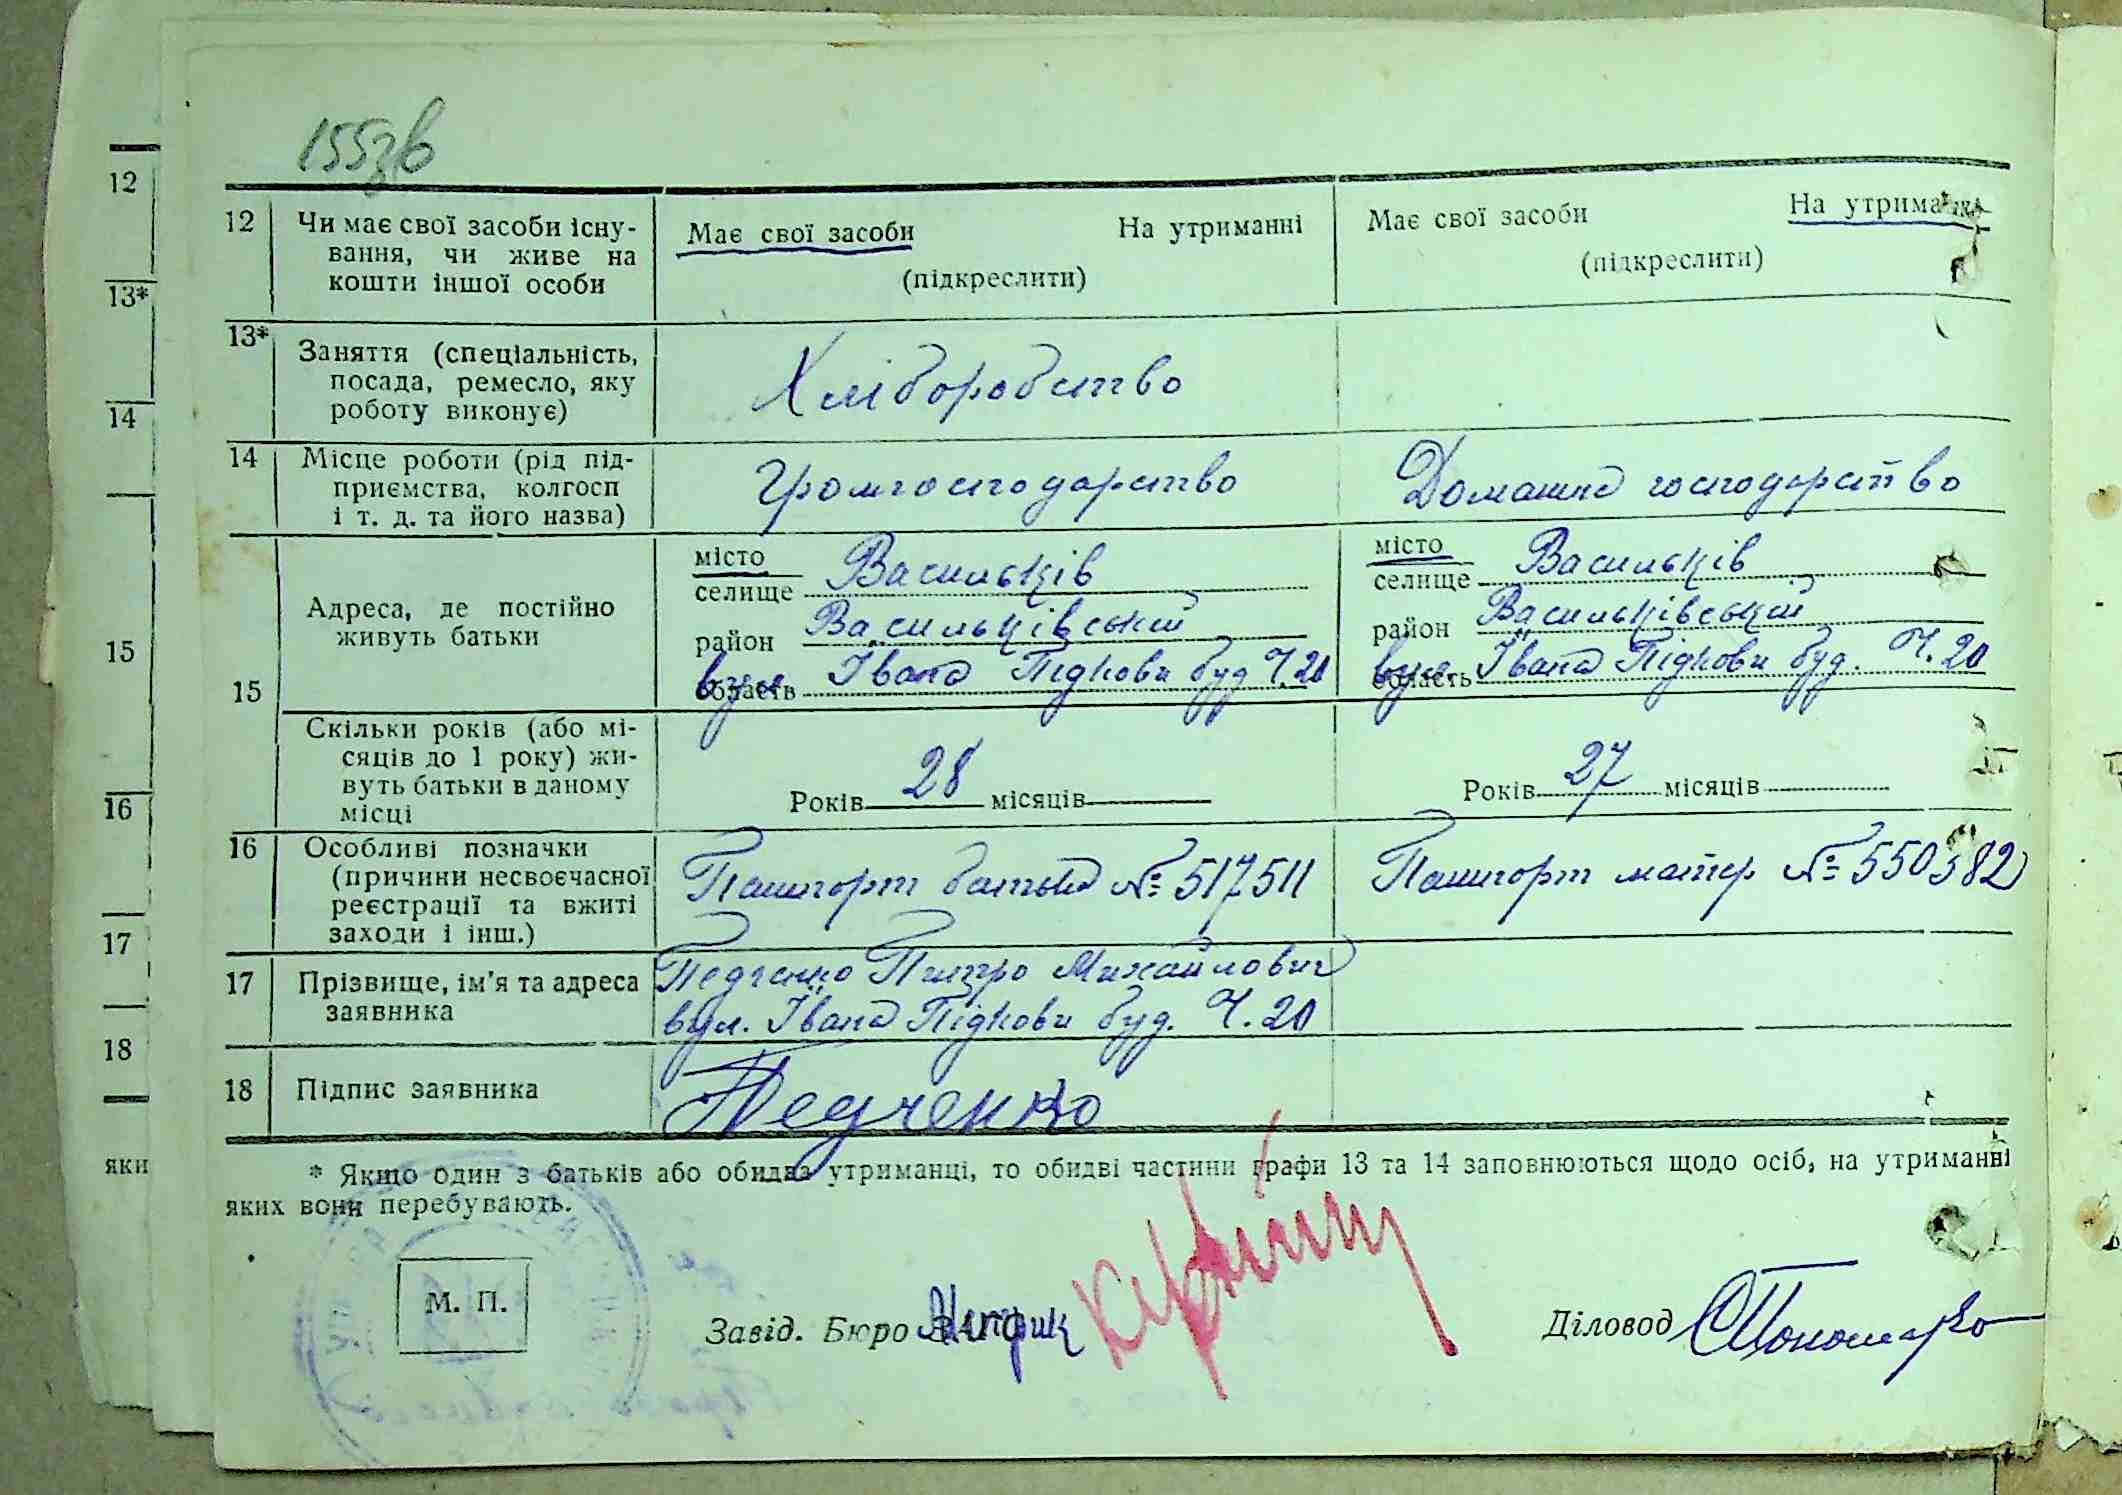 155зв
12 Чи має свої засоби існу-
вання, чи живе на
кошти іншої особи
Має свої засоби На утриманні
(підкреслити)
Має свої засоби На утриманні
(підкреслити)
13* Заняття (спеціальність,
посада, ремесло, яку
роботу виконує)
Хліборобство
14 Місце роботи (рід під-
приємства, колгосп
і т. д. та його назва)
Громгосподарство
Домашнє господарство
15 Адреса, де постійно
живуть батьки
місто
селище Васильків
район Васильківський
область вул. Івана Підкови буд Ч. 20
місто
селище Васильків
район Васильківський
область вул. Івана Підкови буд. Ч. 20
Скільки років (або мі-
сяців до 1 року) жи-
вуть батьки в даному
місці
Років 28 місяців
Років 27 місяців
16 Особливі позначки
(причини несвоєчасної
реєстрації та вжиті
заходи і інш.)
Пашпорт батька № 517511
Пашпорт матер № 550582
17 Прізвище, ім'я та адреса
заявника
Педченко Питро Михайлович
вул. Івана Підкови буд. Ч. 20
18 Підпис заявника
Педченко
* Якщо один з батьків або обидва утриманці, то обидві частини графи 13 та 14 заповнюються щодо осіб, на утриманні
яких вони перебувають.
М. П.
Завід. Бюро ЗАГС
Діловод
12
13*
14
15
16
17
18
яки